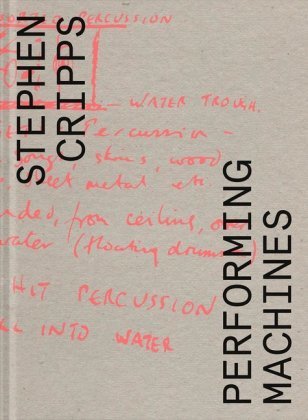 STEPHEN
CRIPPS
PERFORMING
MACHINES
PERCUSSION
WATER TROUGH.
Percussion -
skins, wood
sheet metal etc.
from ceiling, over
water (floating drums)
HIT PERCUSSION
INTO WATER